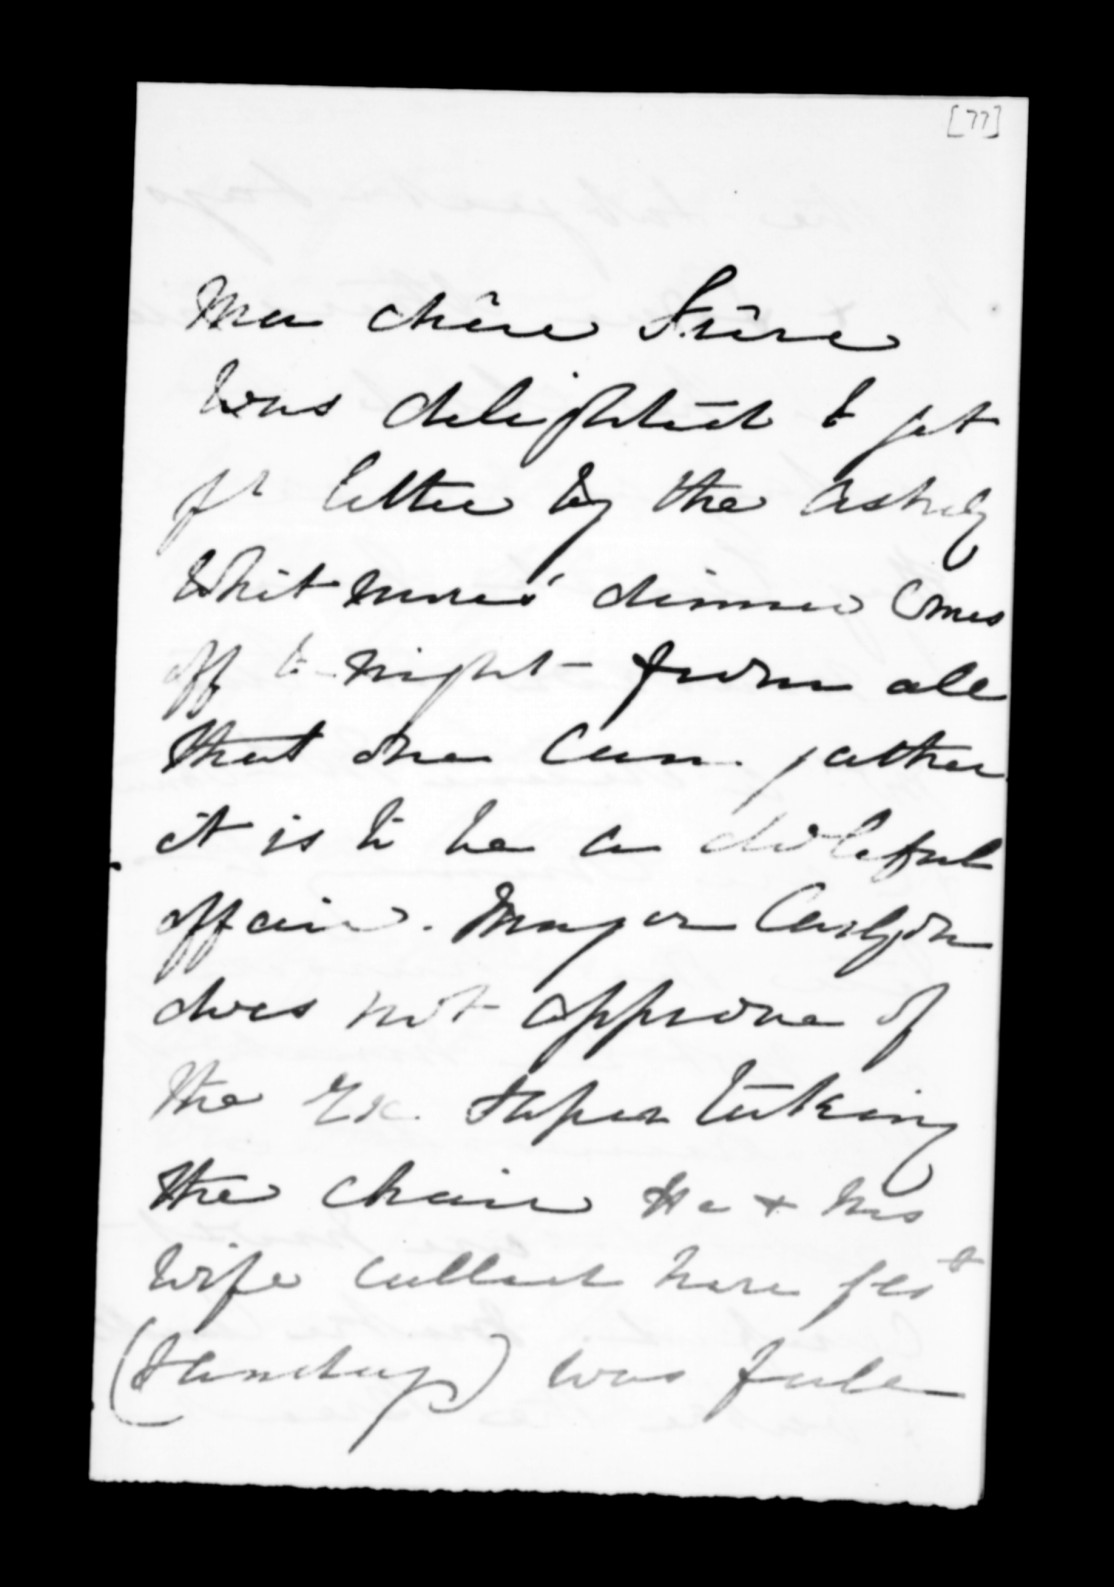 [77]
Ma chère Frère
Was delighted to get
yr letter by the Ashley
Whitmore's dinner comes
off to-night - from all
that one can gather
it is to be a doleful
affair. Major Carlyon
does not approve of
the Ex. Super taking
the chair He & his
wife called here yest
(Sunday) was full